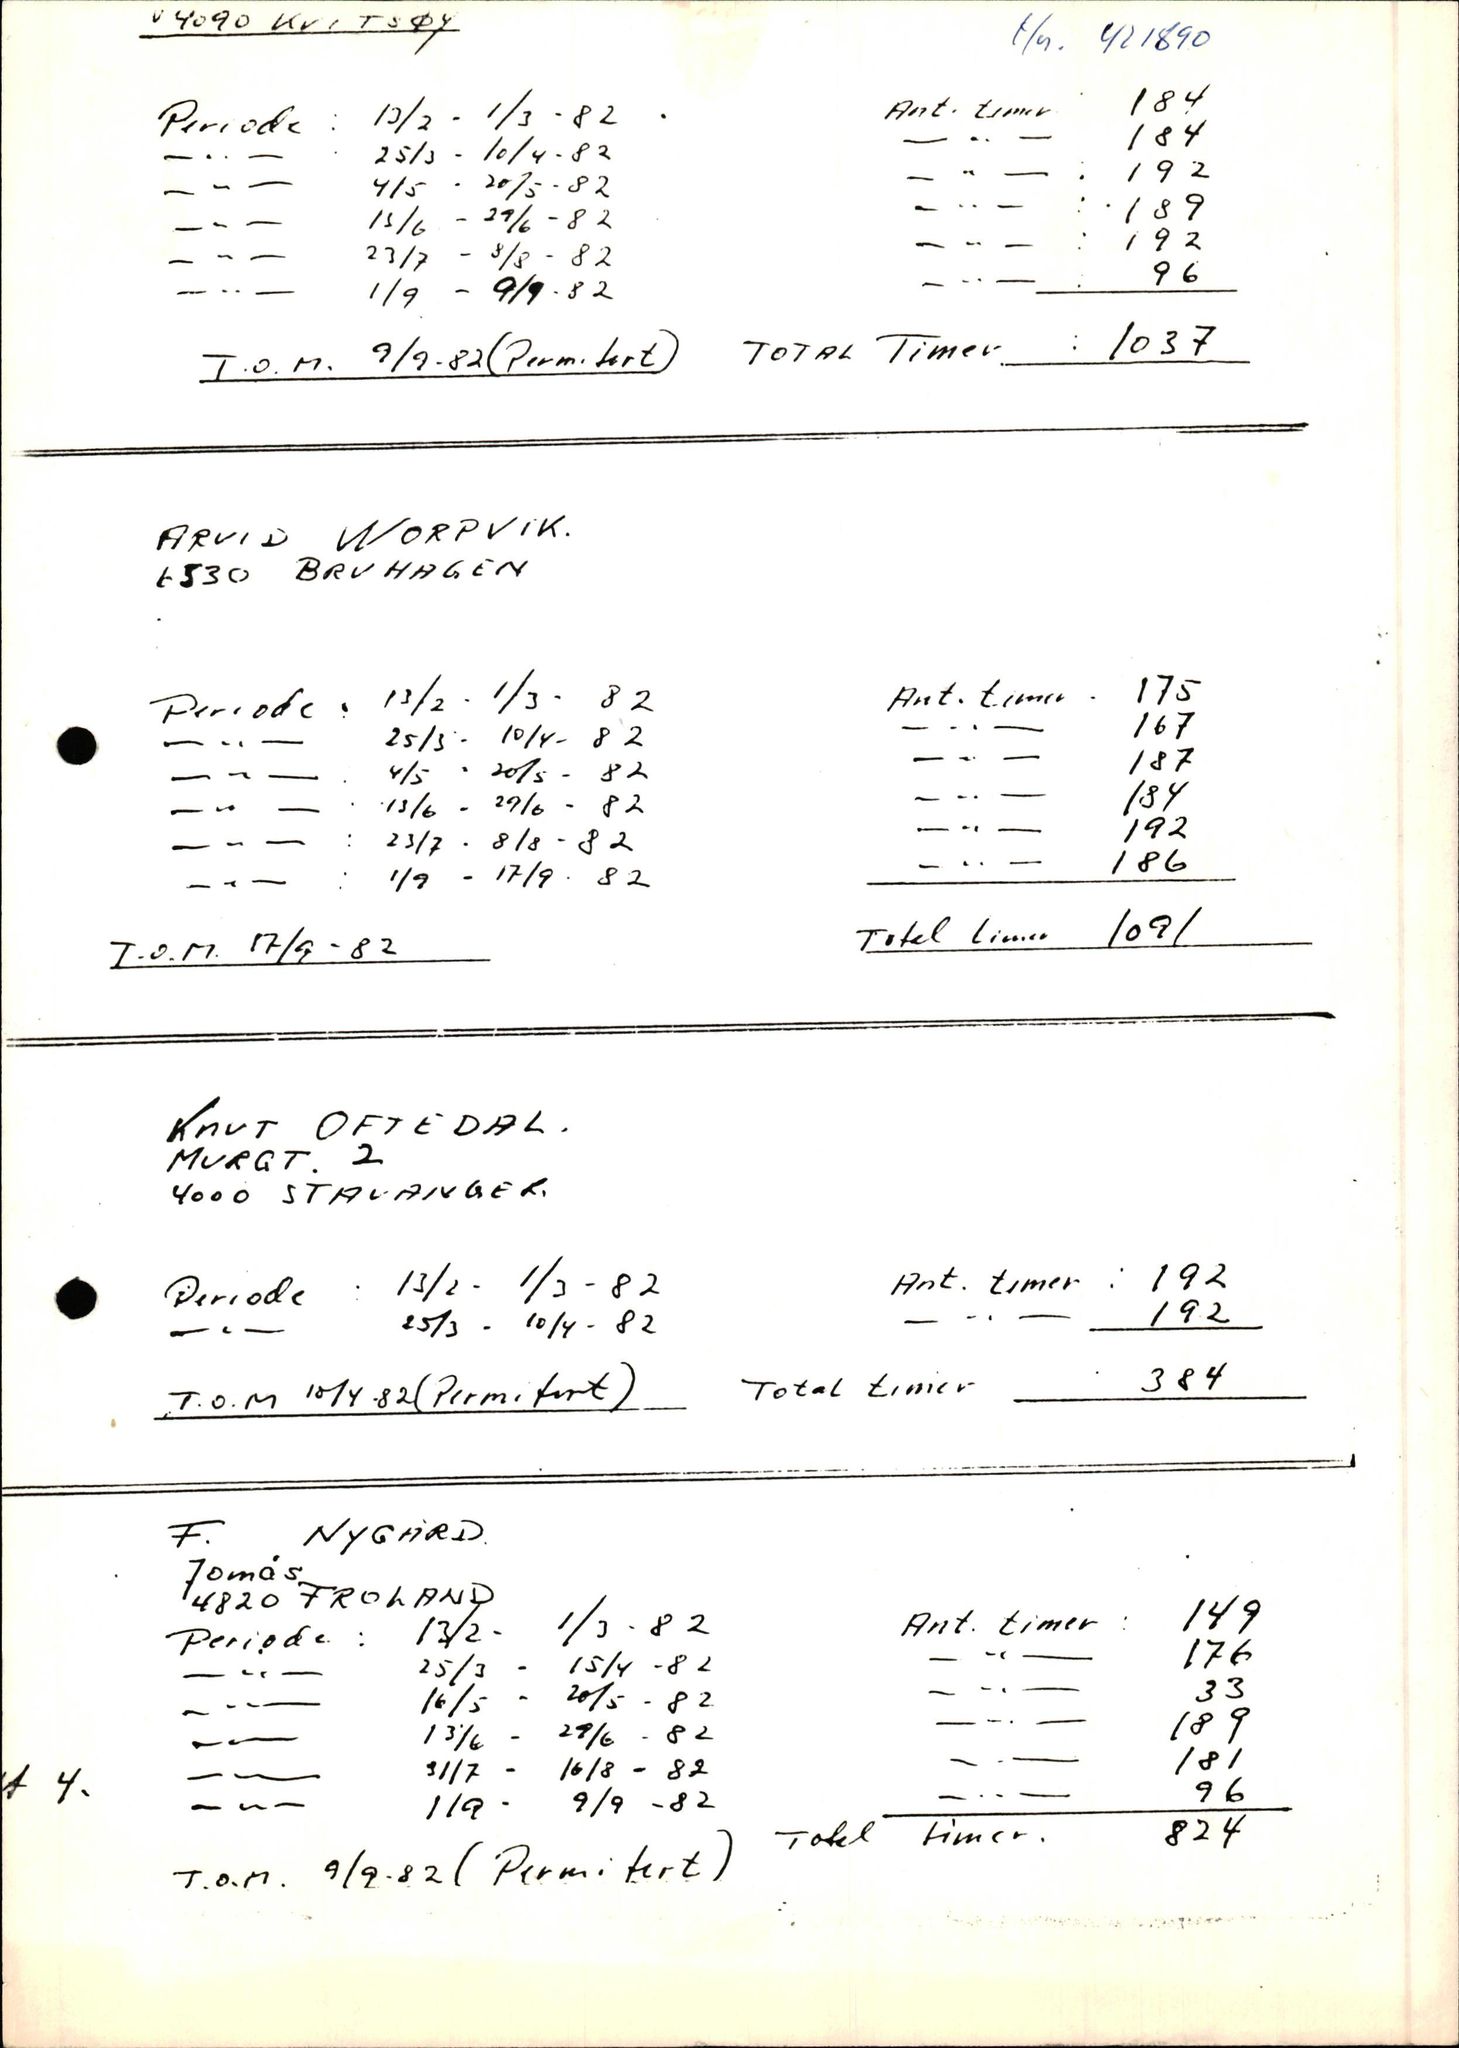 4090 KVITSØY
421890
Periode : 13/2 - 1/3 - 82 . Ant. timer 184
— ·· — 25/3 - 10/4 - 82 — ·· — 184
— " — 4/5 - 20/5 - 82 — " — : 192
— ·· — 13/6 - 29/6 - 82 — ·· — : 189
— " — 23/7 - 8/8 - 82 — " — : 192
— ·· — 1/9 - 9/9 - 82 — ·· — : 96
T.O.M. 9/9-82 (Permitert) TOTAL Timer : 1037
ARVID WORPVIK.
6530 BRUHAGEN
Periode : 13/2 - 1/3 - 82 Ant. timer - 175
— ·· — 25/3 - 10/4 - 82 — ·· — 167
— " — 4/5 - 20/5 - 82 — " — 187
— " — 13/6 - 29/6 - 82 — ·· — 184
— " — : 23/7 - 8/8 - 82 — " — 192
— " — : 1/9 - 17/9 - 82 — ·· — 186
T.O.M. 17/9 - 82 Total timer 1091
KNUT OFTEDAL.
MURGT. 2
4000 STAVANGER.
Periode : 13/2 - 1/3 - 82 Ant. timer : 192
— " — 25/3 - 10/4 - 82 — ·· — 192
T.O.M 10/4-82 (Permitert) Total timer 384
F. NYGÅRD.
Jomås
4820 FROLAND
Periode : 13/2 - 1/3 - 82 Ant. timer : 149
— " — 25/3 - 15/4 - 82 — " — 176
— " — 16/5 - 20/5 - 82 — ·· — 33
— " — 13/6 - 29/6 - 82 — ·· — 189
— " — 31/7 - 16/8 - 82 — ·· — 181
4. — " — 1/9 - 9/9 - 82 — ·· — 96
Total timer. 824
T.O.M. 9/9-82 (Permitert)